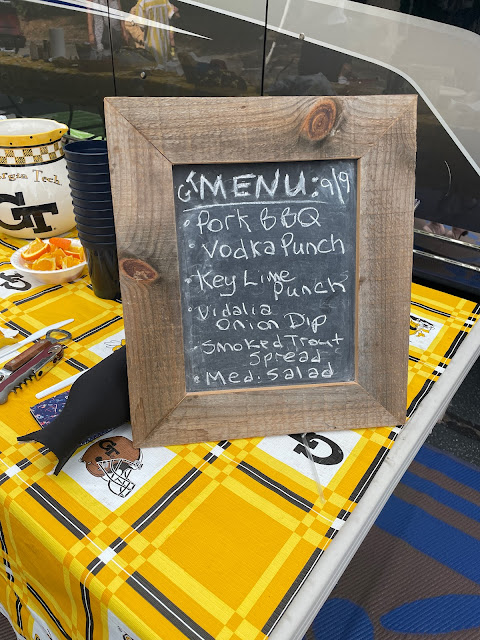 Georgia Tech
GT
GT MENU: 9/9
• Pork BBQ
• Vodka Punch
• Key Lime
Punch
• Vidalia
Onion Dip
• Smoked Trout
Spread
• Med. Salad
GT